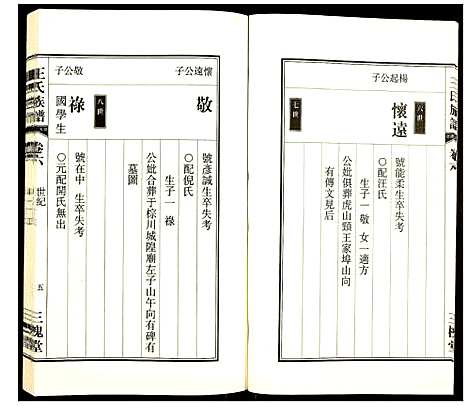 王氏族譜
卷六
三槐堂
楊起公子
六世
懷遠
號能柔生卒失考
○配汪氏
生子一 敬 女一適方
公妣俱葬虎山頸王家埠山向
有傳文見后
七世
懷遠公子
敬
號彥誠生卒失考
○配倪氏
生子一 祿
公妣合葬于棕川城隍廟左子山午向有碑有
墓圖
敬公子
八世
祿
國學生
號在中 生卒失考
○元配開氏無出
王氏族譜
卷六
世紀
五
三槐堂